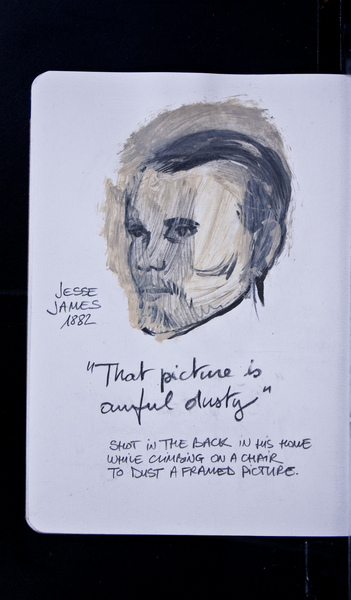 JESSE
JAMES
1882
"That picture is
awful dusty"
SHOT IN THE BACK IN HIS HOME
WHILE CLIMBING ON A CHAIR
TO DUST A FRAMED PICTURE.